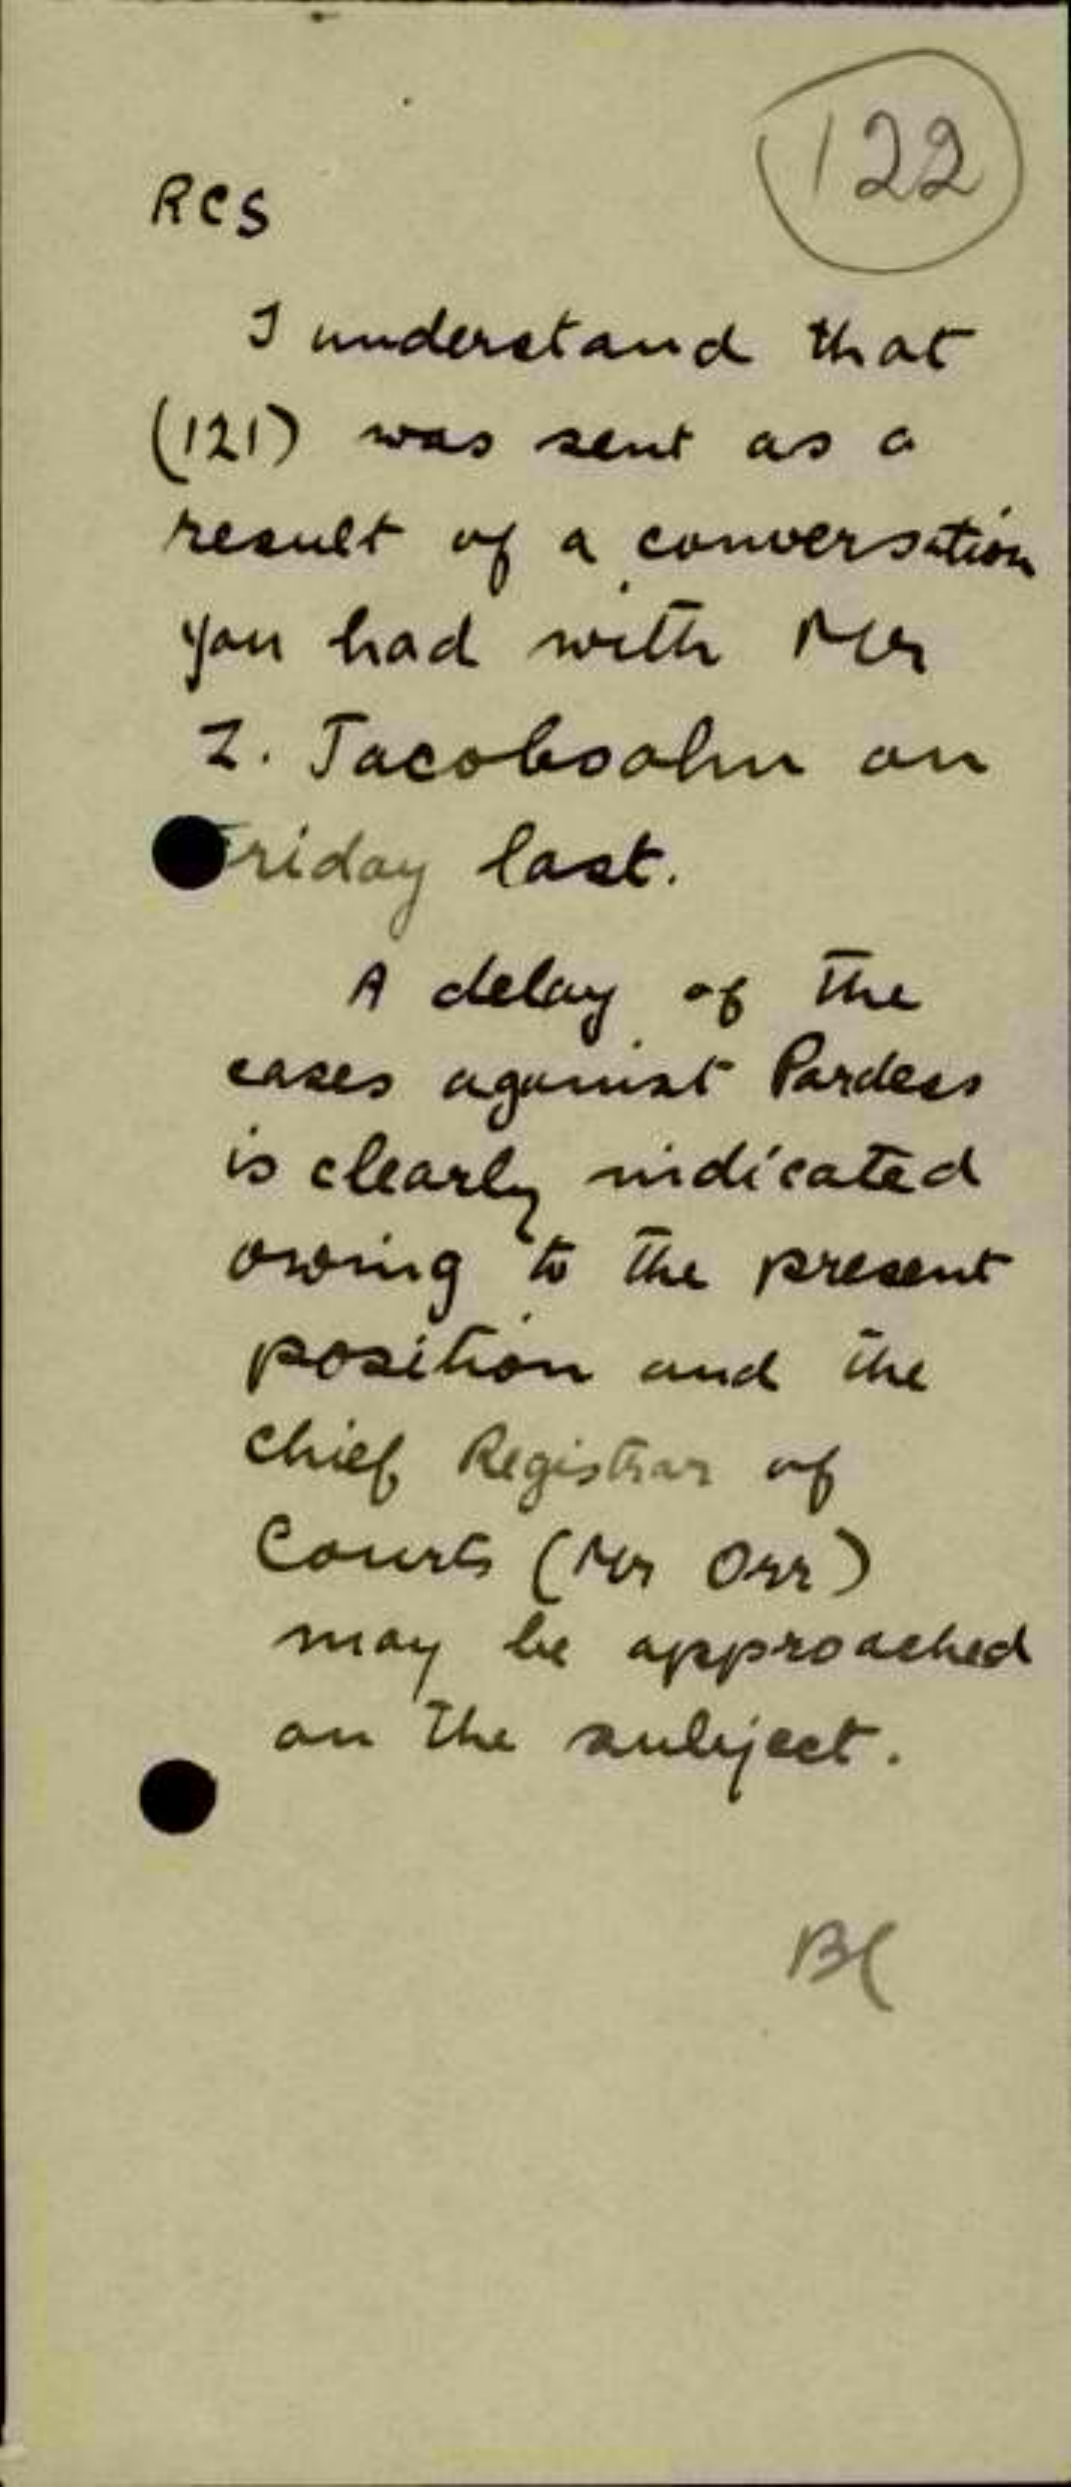 122
RCS
I understand that
(121) was sent as a
result of a conversation
you had with Mr
Z. Jacobsohn on
Friday last.
A delay of the
cases against Pardess
is clearly indicated
owing to the present
position and the
chief Registrar of
Courts (Mr Orr)
may be approached
on the subject.